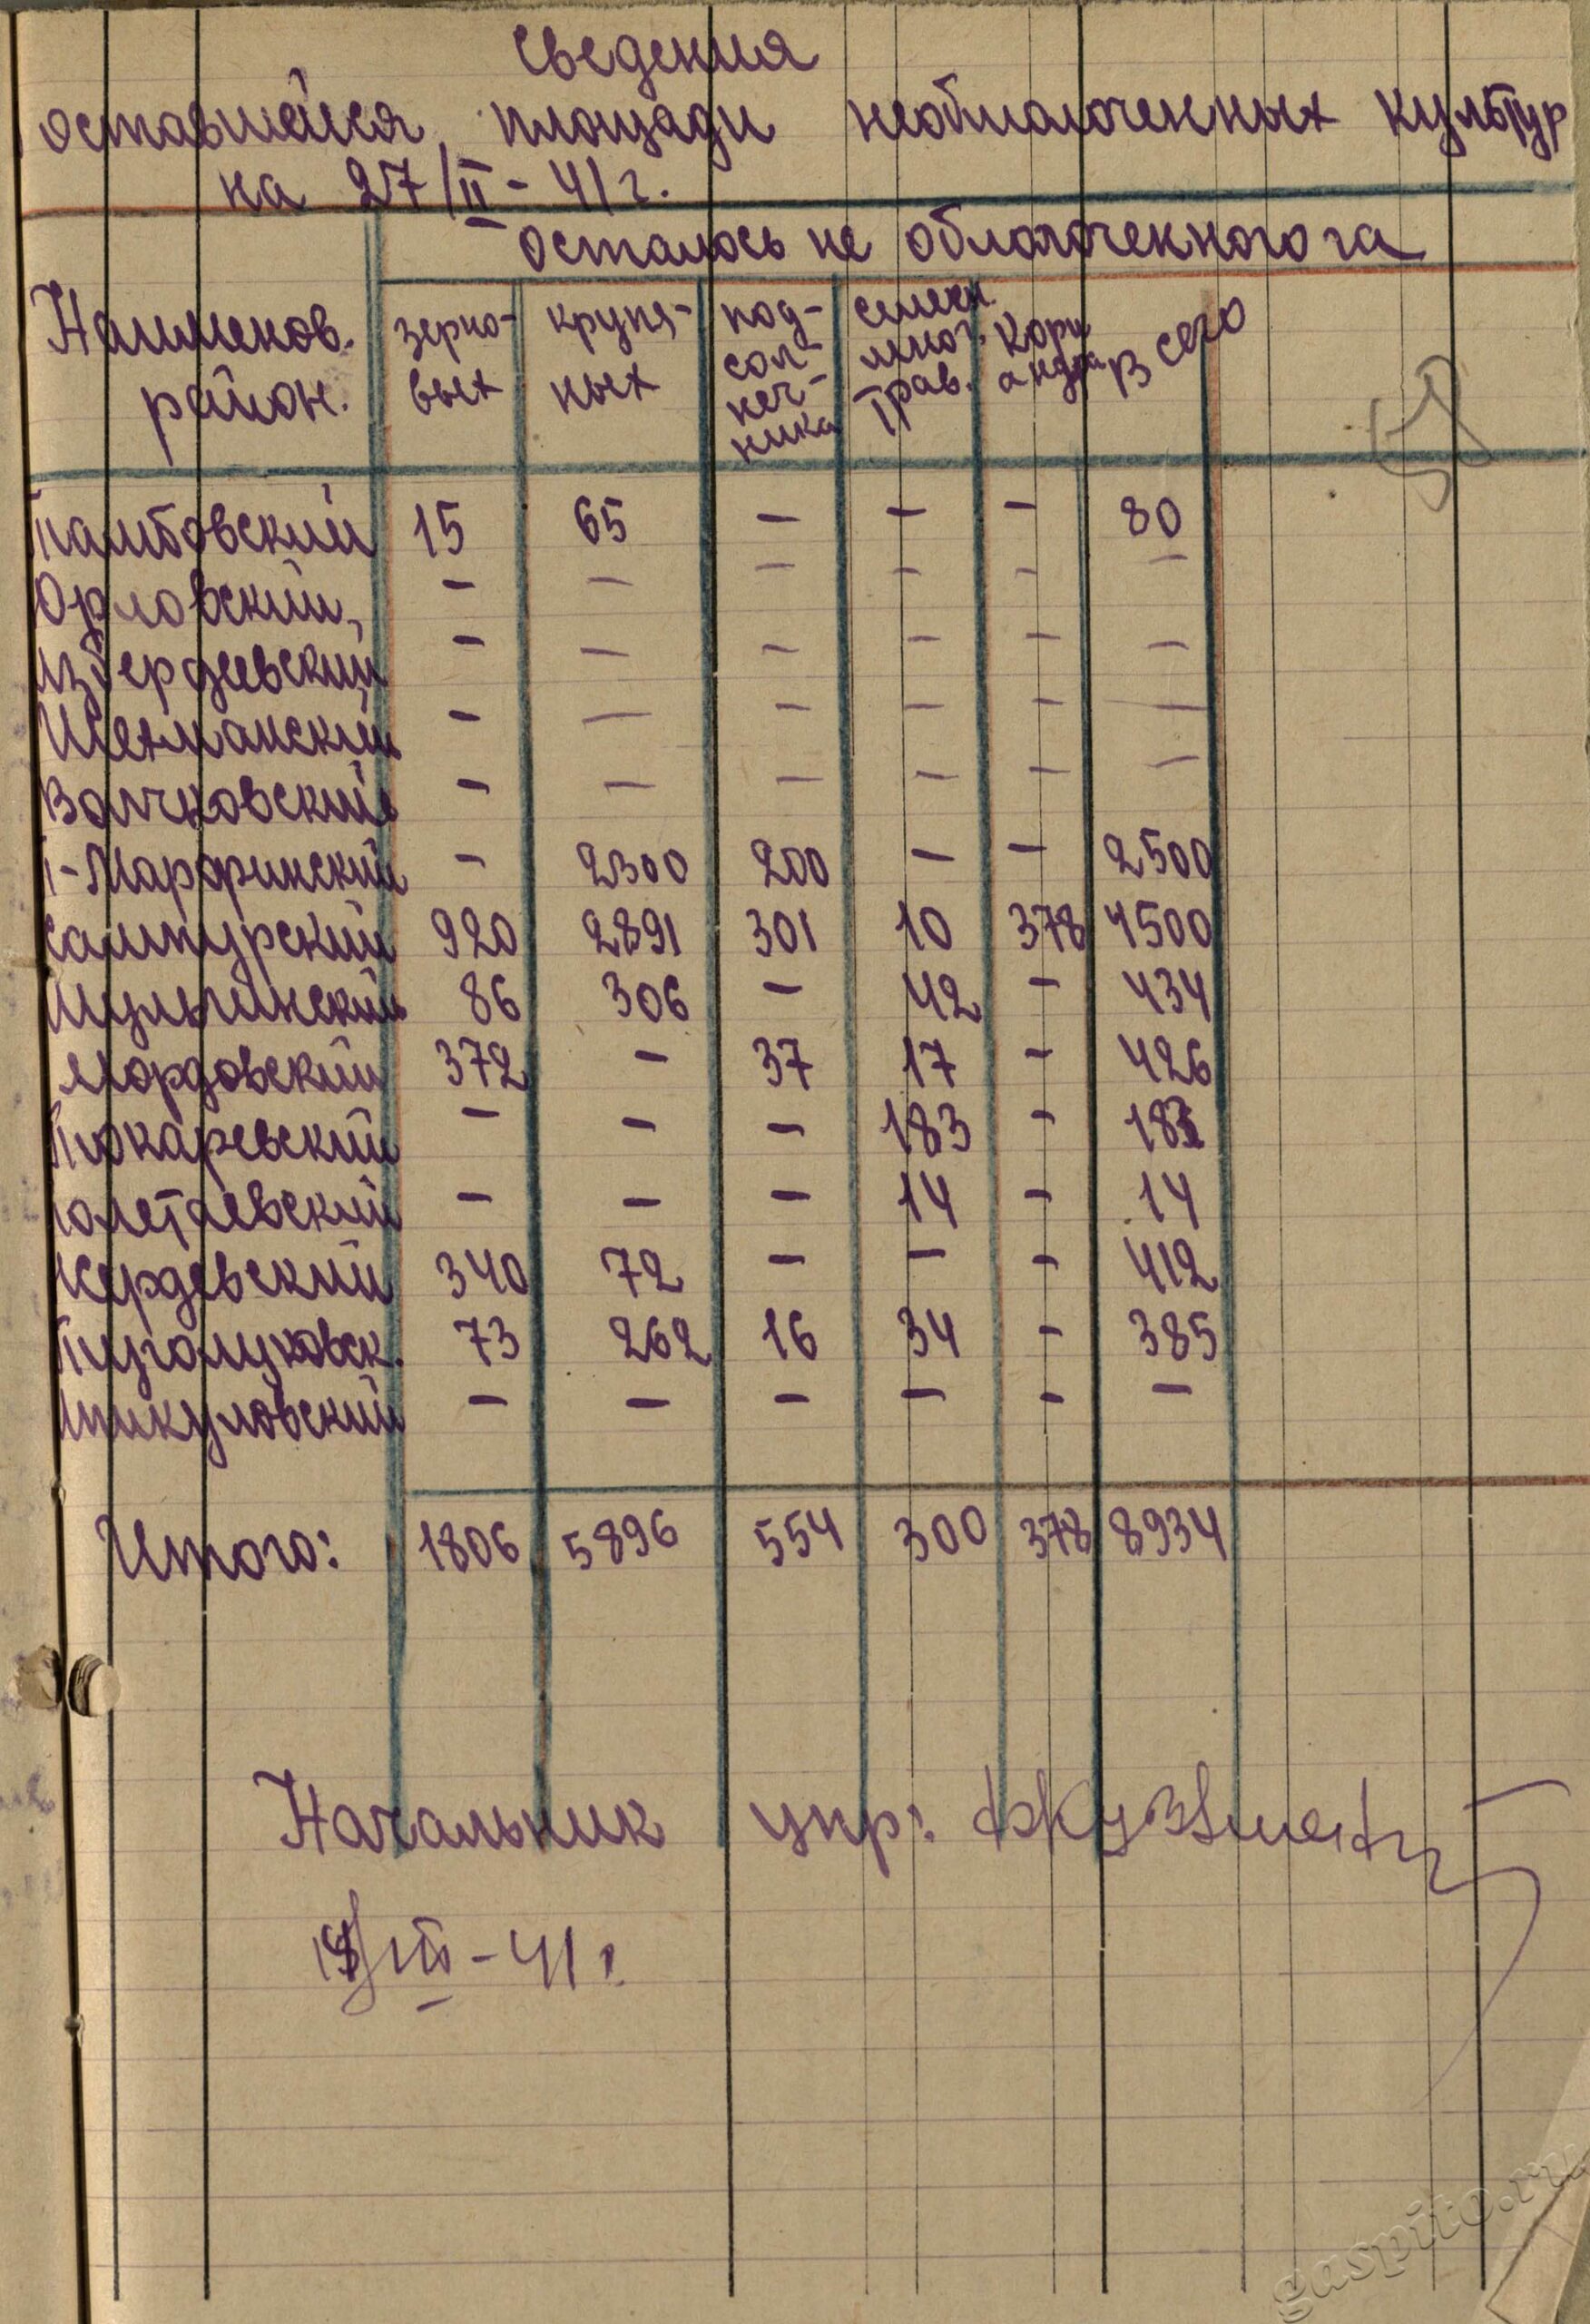 Сведения
оставшейся площади необмолоченных культур
на 27/II - 41 г.
осталось не обмолоченного га
Наименов. район. зерно-вых крупя-ных под-сол-неч-ника семен. мног. трав. Кори андра Всего
Тамбовский 15 65 — — — 80
Орловский — — — — — —
Избердеевский — — — — — —
Шехманский — — — — — —
Волчковский — — — — — —
Т-Марфинский — 2300 200 — — 2500
Сампурский 920 2891 301 10 378 4500
Шульгинский 86 306 — 42 — 434
Мордовский 372 — 37 17 — 426
Токаревский — — — 183 — 183
Полетаевский — — — 14 — 14
Жердевский 340 72 — — — 412
Туголуковск. 73 262 16 34 — 385
Шпикуловский — — — — — —
Итого: 1806 5896 554 300 378 8934
Начальник упр:
/III - 41 г.
gaspito.ru